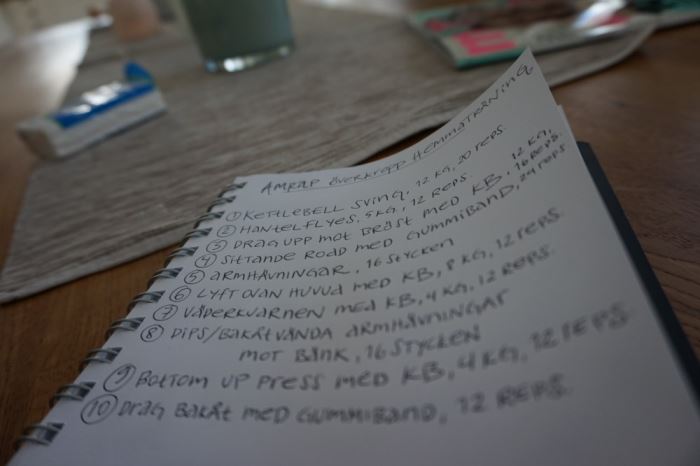 AMRAP ÖVERKROPP HEMMATRÄNING
① KETTLEBELL SVING, 12 KG, 20 REPS.
② HANTELFLYES, 5 KG, 12 REPS
③ DRAG UPP MOT BRÖST MED KB, 12 KG, 16 REPS.
④ SITTANDE RODD MED GUMMIBAND, 24 REPS
⑤ ARMHÄVNINGAR, 16 STYCKEN
⑥ LYFT OVAN HUVUD MED KB, 8 KG, 12 REPS.
⑦ VÄDERKVARNEN MED KB, 4 KG, 12 REPS.
⑧ DIPS/BAKÅTVÄNDA ARMHÄVNINGAR
MOT BÄNK, 16 STYCKEN
⑨ BOTTOM UP PRESS MED KB, 4 KG, 12 REPS
⑩ DRAG BAKÅT MED GUMMIBAND, 12 REPS.